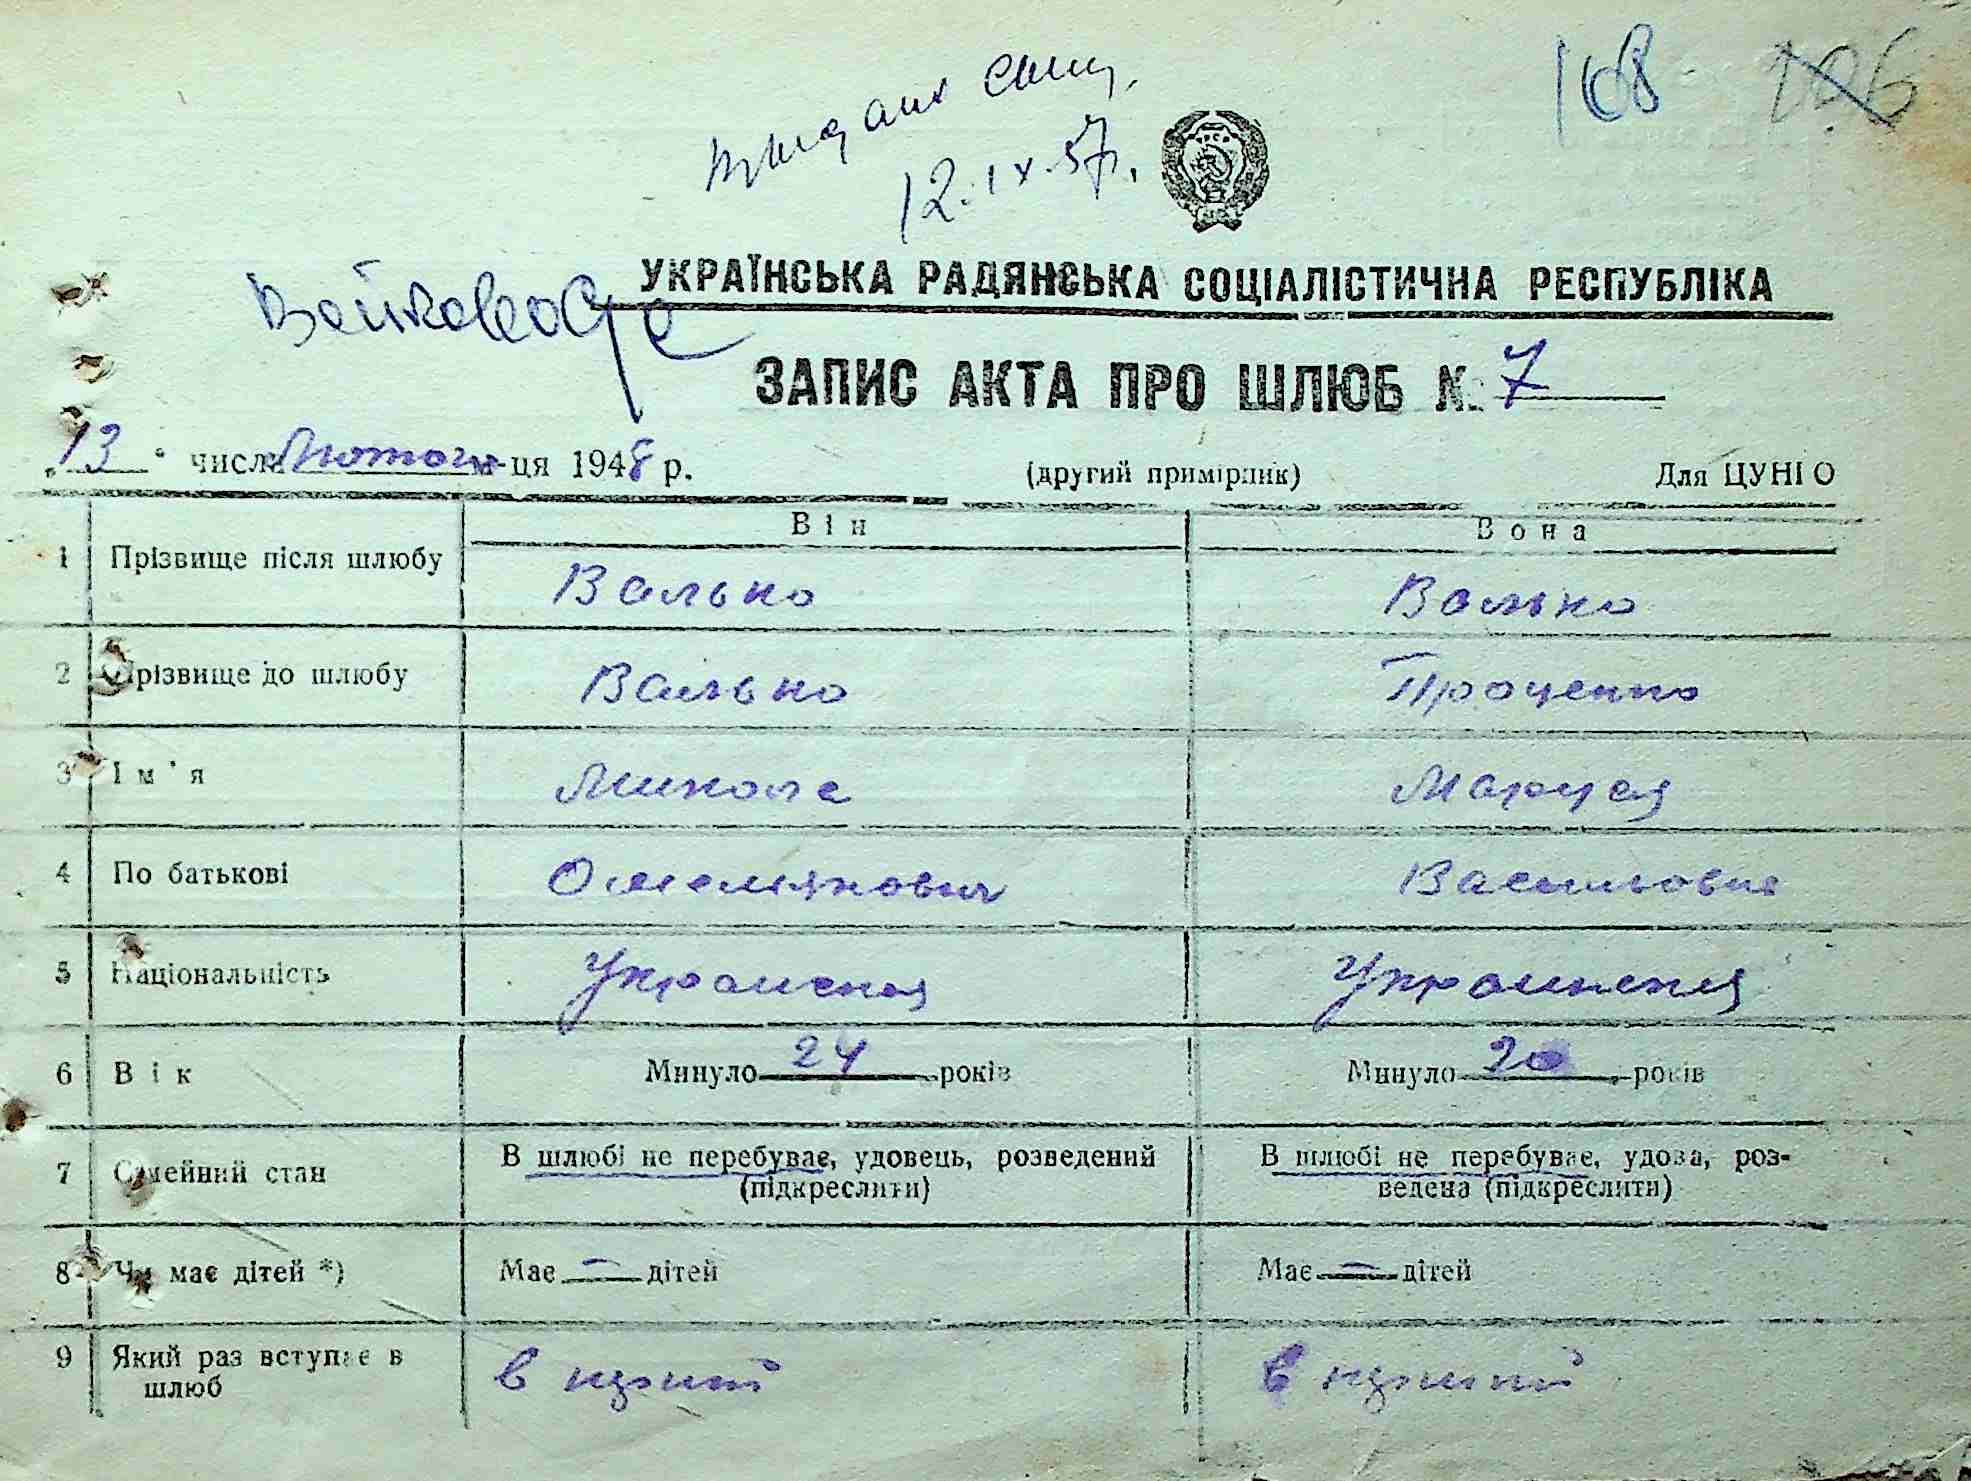 168 106
12.IX.57р.
УКРАЇНСЬКА РАДЯНСЬКА СОЦІАЛІСТИЧНА РЕСПУБЛІКА
ЗАПИС АКТА ПРО ШЛЮБ № 7
„13“ числа лютого м-ця 1948 р. (другий примірник) Для ЦУНГО
Він Вона
1 Прізвище після шлюбу Валько Валько
2 Прізвище до шлюбу Валько Проценко
3 Ім'я Микола Маруся
4 По батькові Омелянович Василовна
5 Національність Українська
6 Вік Минуло 24 років Минуло 20 років
7 Сімейний стан В шлюбі не перебуває, удовець, розведений В шлюбі не перебуває, удова, роз-
(підкреслити) ведена (підкреслити)
8 Чи має дітей *) Має — дітей Має — дітей
9 Який раз вступає в в перший в перший
шлюб